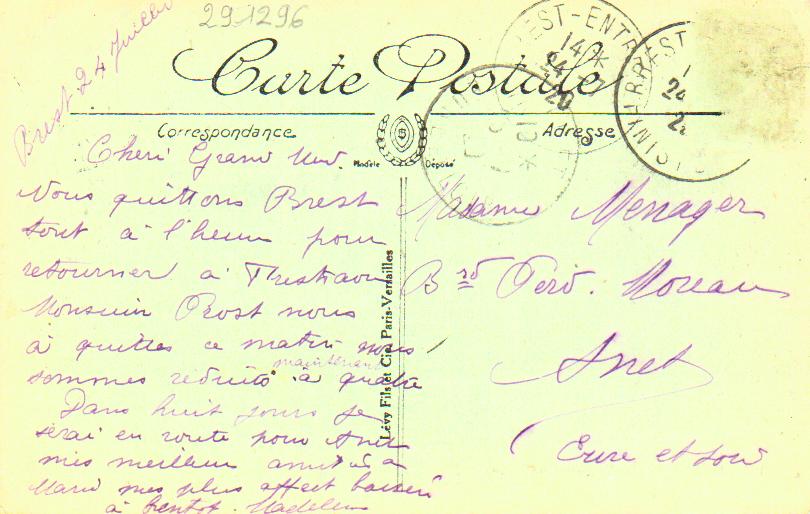 291296
Brest 24 Juillet
Carte Postale
Correspondance
Adresse
Modèle Déposé
Cheri Grand
Nous quittons Brest
tout à l'heure pour
retourner à
Monsieur Prost nous
à quittés ce matin nous
sommes réduits maintenant à quatre
Dans huit jours je
serai en route pour Anet
mes meilleurs amitiés à
Marie mes plus affect baisers
à bientot. Madeleine
Lévy Fils et Cie, Paris-Versailles
Madame Menager
Brd Ferd. Moreau
Anet
Eure et Loir
BREST
24